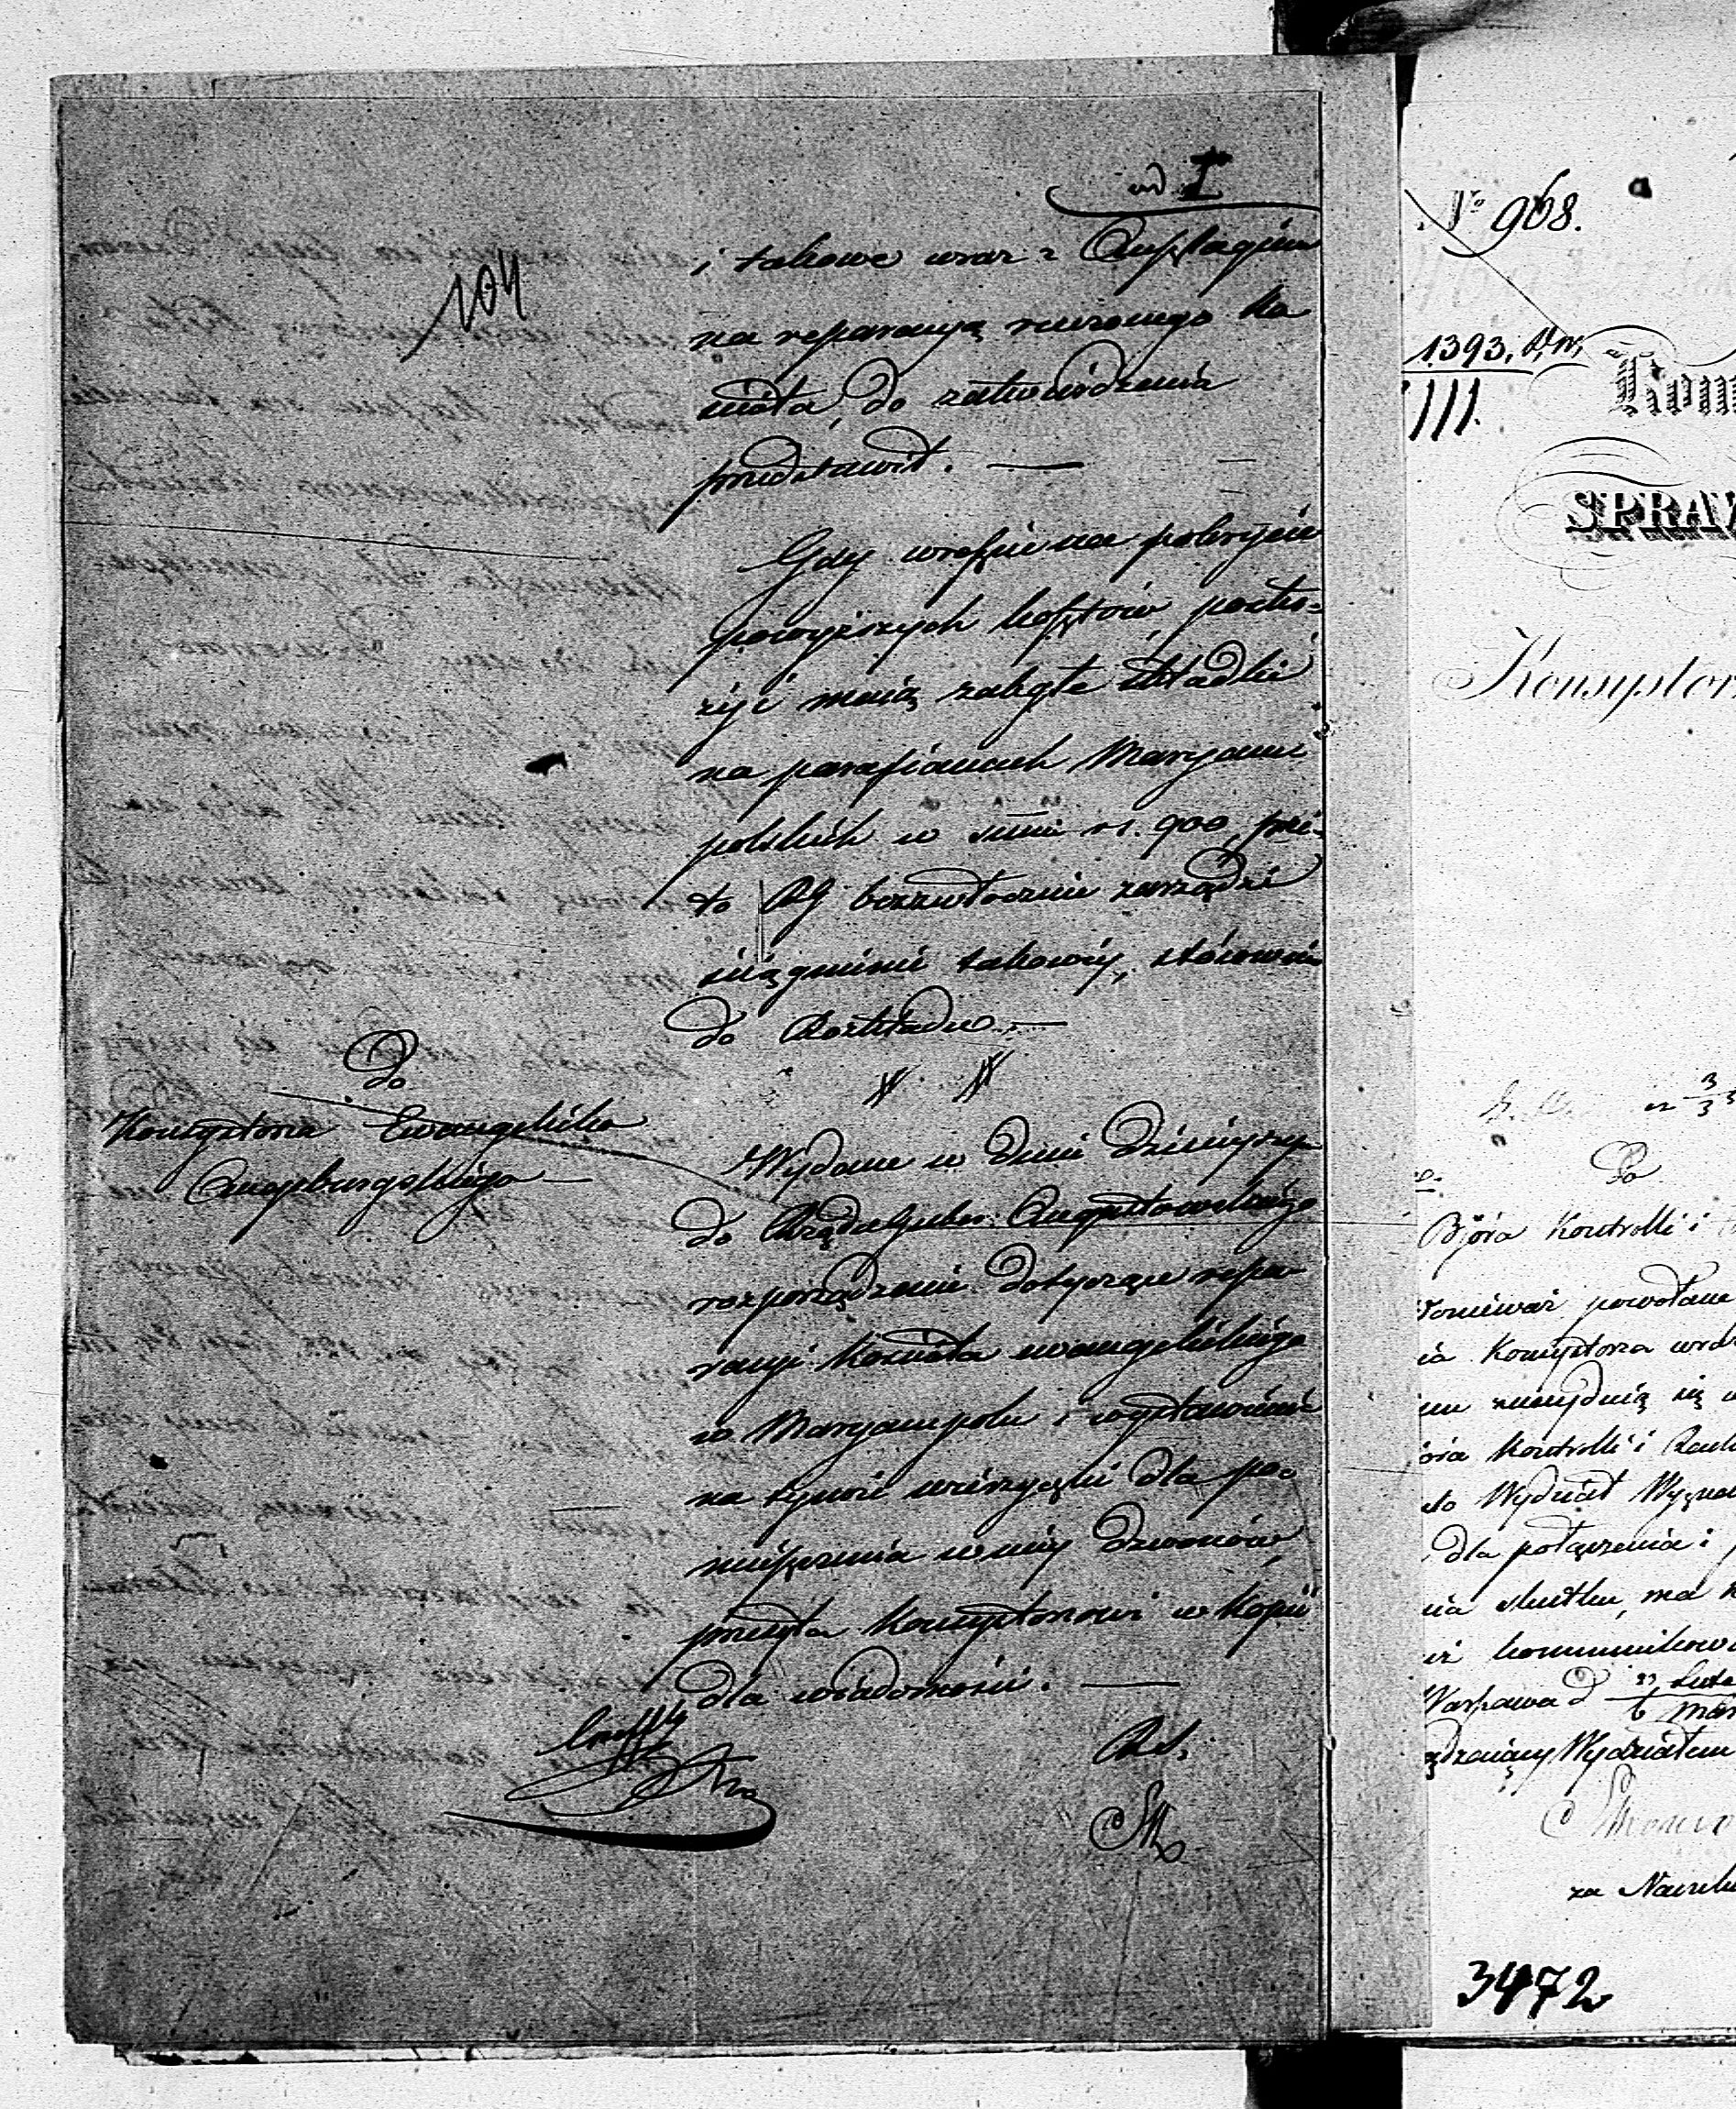 ad I
104
i takowe wraz z Anszlagiem
na reparacyą rzeczonego Ko
ścioła, do zatwierdzenia
przedstawił. —
Gdy wreszcie na pokrycie
powyższych kosztów posłu=
żyć maią zaległe składki
na parafianach Maryam
polskich w summie rs. 900, prze
to RG bezzwłocznie zarządzi
ściągnienie takowéy, stósownie
do Rozkładu. —
Do
Konsystorza Ewangelicko
Augsburgskiego —
Wydane w dniu dzisieyszym
do Rządu Guber: Augustowskiego
rozporządzenie dotyczące repa-
racyi Kościoła ewangelickiego
w Maryampolu i wystawienia
na tymże wieżyczki dla po-
mieszczenia w niéy dzwonów,
przesyła Konsystorzowi w Kopii
dla wiadomości. —
No 968.
1393.
III.
Kom
SPRAW
Konsystor
Do
Bióra Kontrolli i
Ponieważ powołane
ia Konsystorza
znaydują się w
óra Kontrolli i
to Wydział Wyzna
dla połączenia i
ia skutku, ma
kommunikow
Warszawa d
6 mar
ądzaiący Wydziałem
za Naczeln
3472